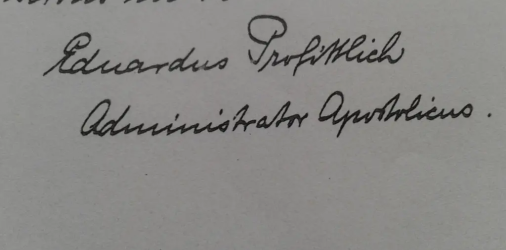 Eduardus Profittlich
Administrator Apostolicus.